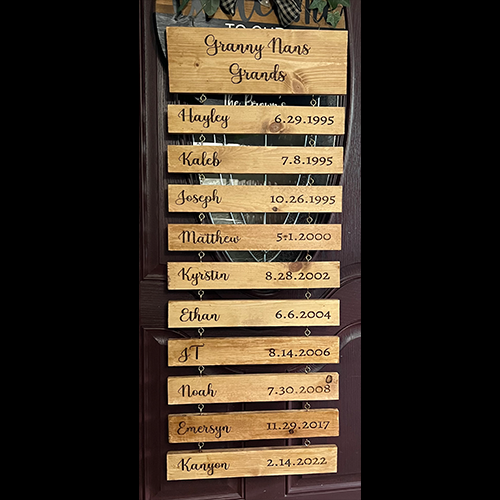 TO OUR
Granny Nans
Grands
The Brown's
Hayley 6.29.1995
Kaleb 7.8.1995
Joseph 10.26.1995
Matthew 5.1.2000
Kyrstin 8.28.2002
Ethan 6.6.2004
JT 8.14.2006
Noah 7.30.2008
Emersyn 11.29.2017
Kanyon 2.14.2022